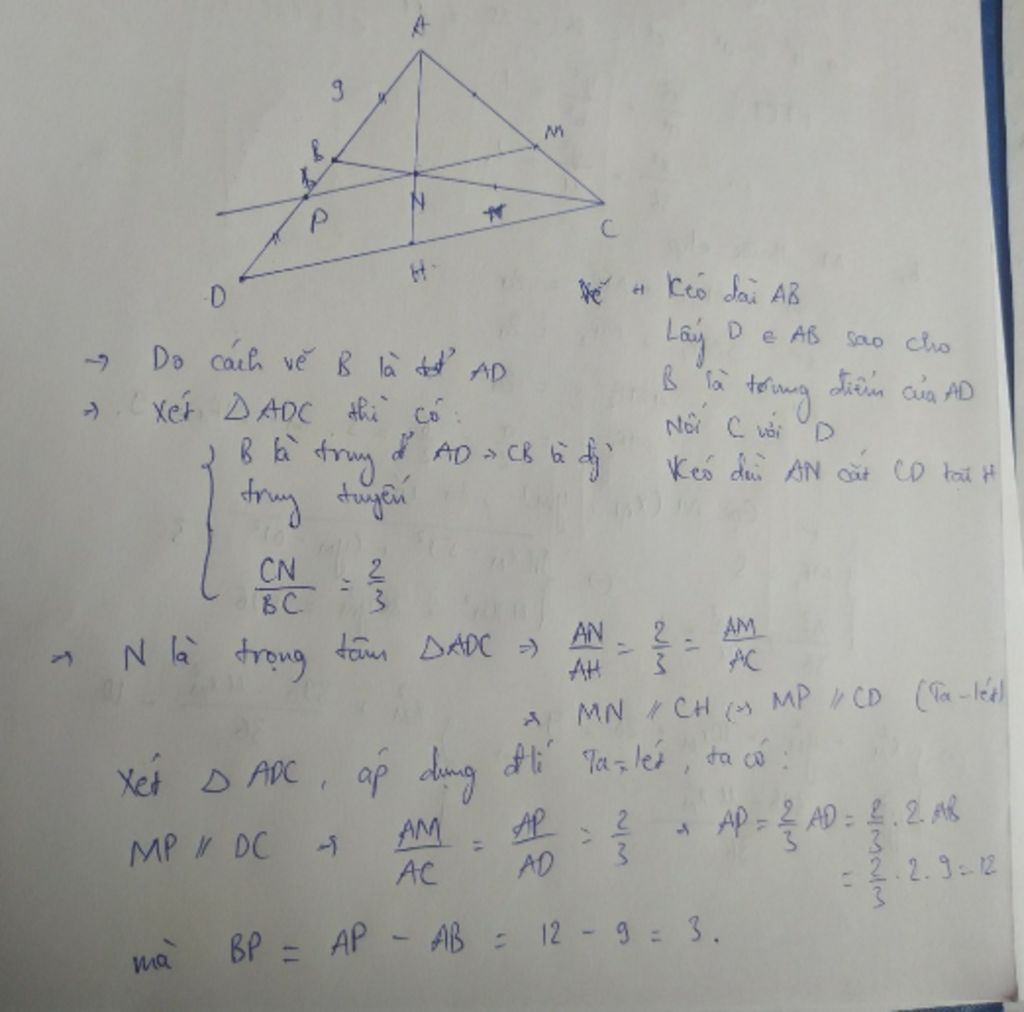 A
9
M
B
N
P
C
H
D
Vẽ + Kéo dài AB
Lấy D ∈ AB sao cho
B là trung điểm của AD
Nối C với D
Kéo dài AN cắt CD tại H
→ Do cách vẽ B là tđ AD
→ Xét △ADC thì có:
B là trung đ AD → CB là đg
trung tuyến
CN/BC = 2/3
→ N là trọng tâm △ADC → AN/AH = 2/3 = AM/AC
→ MN // CH → MP // CD (Ta-lét)
Xét △ADC, áp dụng đlí Ta-lét, ta có:
MP // DC → AM/AC = AP/AD = 2/3 → AP = 2/3 AD = 2/3 . 2. AB
= 2/3 . 2. 9 = 12
mà BP = AP - AB = 12 - 9 = 3.